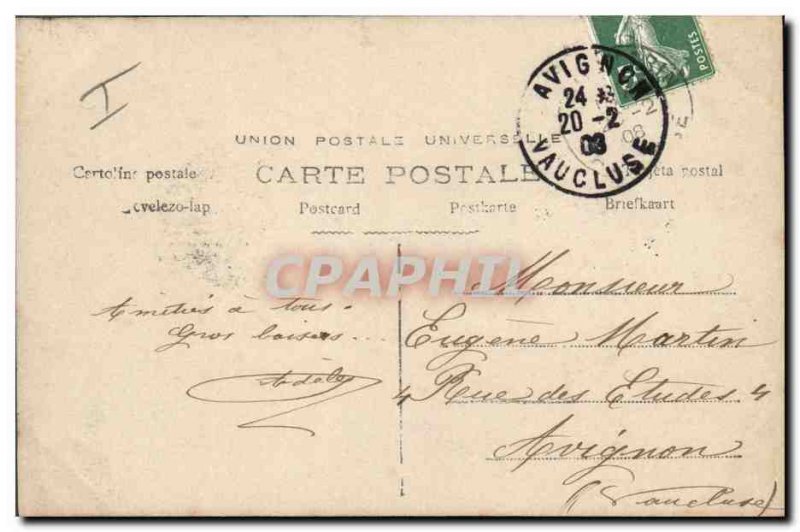 I
POSTES
AVIGNON
24
20 -2
08
VAUCLUSE
UNION POSTALE UNIVERSELLE
Cartolina postale
CARTE POSTALE
Tarjeta postal
Levelezo-lap
Postcard
Postkarte
Briefkaart
CPAPHIL
Amitiés à tous.
Gros baisers...
Adèle
Monsieur
Eugène Martin
4 Rue des Etudes 4
Avignon
(Vaucluse)